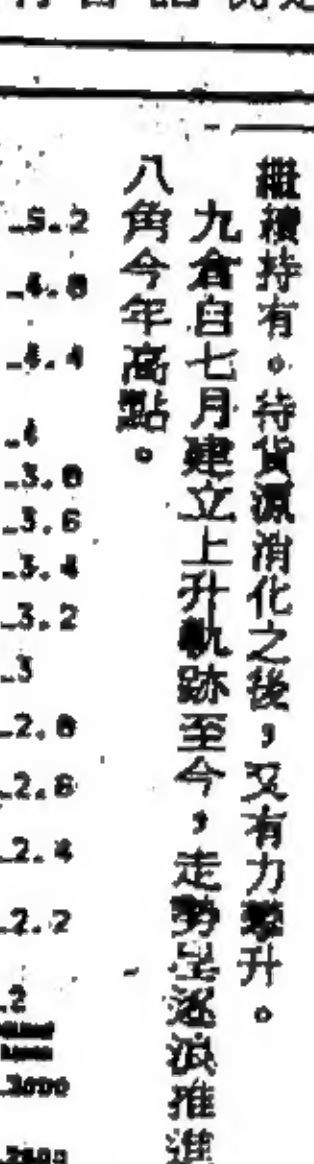 繼續持有。待貨源消化之後，又有力攀升。
九倉自七月建立上升軌跡至今，走勢呈逐浪推進
八角今年高點。
5.2
4.8
4.4
4
3.8
3.6
3.4
3.2
3
2.8
2.6
2.4
2.2
2
3000